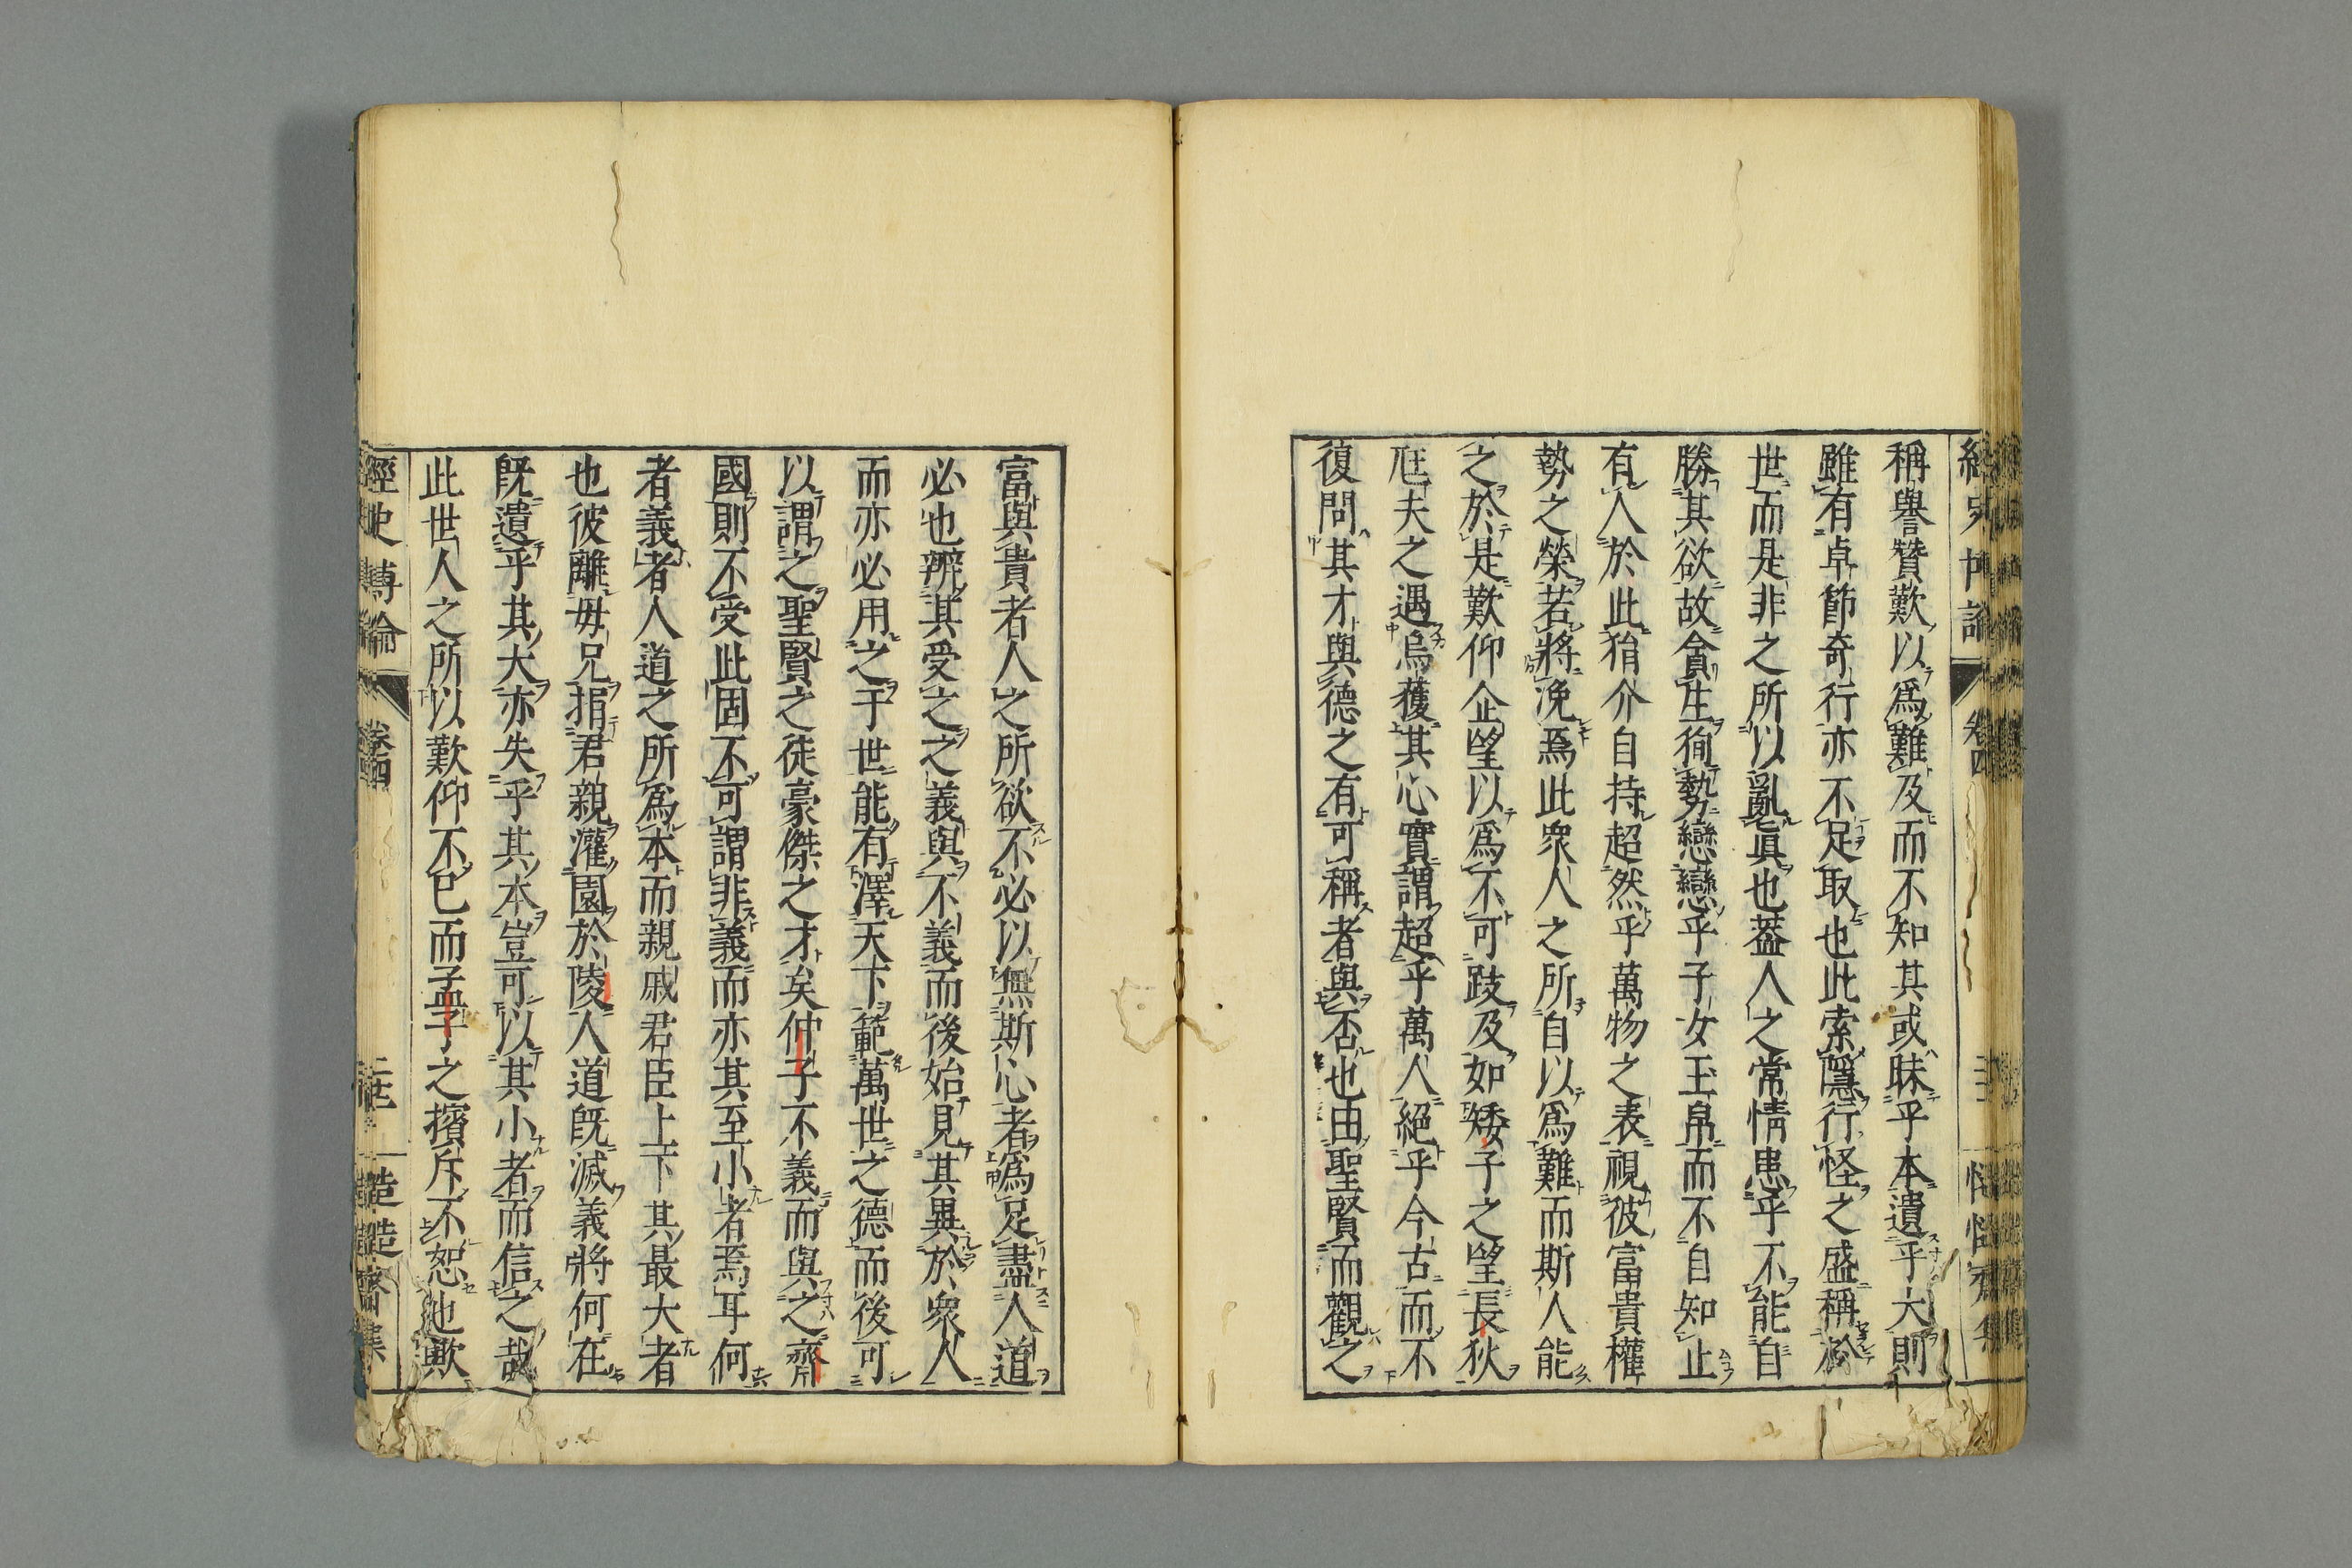 稱譽贊歎以爲難及而不知其或昧乎本遺乎大則
雖有卓節奇行亦不足取也此索隱行怪之盛稱於
世而是非之所以亂眞也蓋人之常情患乎不能自
勝其欲故貪生徇勢戀戀乎子女玉帛而不自知止
有人於此狷介自持超然乎萬物之表視彼富貴權
勢之榮若將浼焉此衆人之所自以爲難而斯人能
之於是歎仰企望以爲不可跂及如矮子之望長狄
尫夫之遇烏獲其心實謂超乎萬人絕乎今古而不
復問其才與德之有可稱者與否也由聖賢而觀之
富與貴者人之所欲不必以無斯心者爲足盡人道
必也辨其受之之義與不義而後始見其異於衆人
而亦必用之于世能有澤天下範萬世之德而後可
以謂之聖賢之徒豪傑之才矣仲子不義而與之齊
國則不受此固不可謂非義而亦其至小者焉耳何
者義者人道之所爲本而親戚君臣上下其最大者
也彼離毋兄捐君親灌園於陵人道旣滅義將何在
旣遺乎其大亦失乎其本豈可以其小者而信之哉
此世人之所以歎仰不已而孟子之擯斥不恕也歟
經史博論
卷四